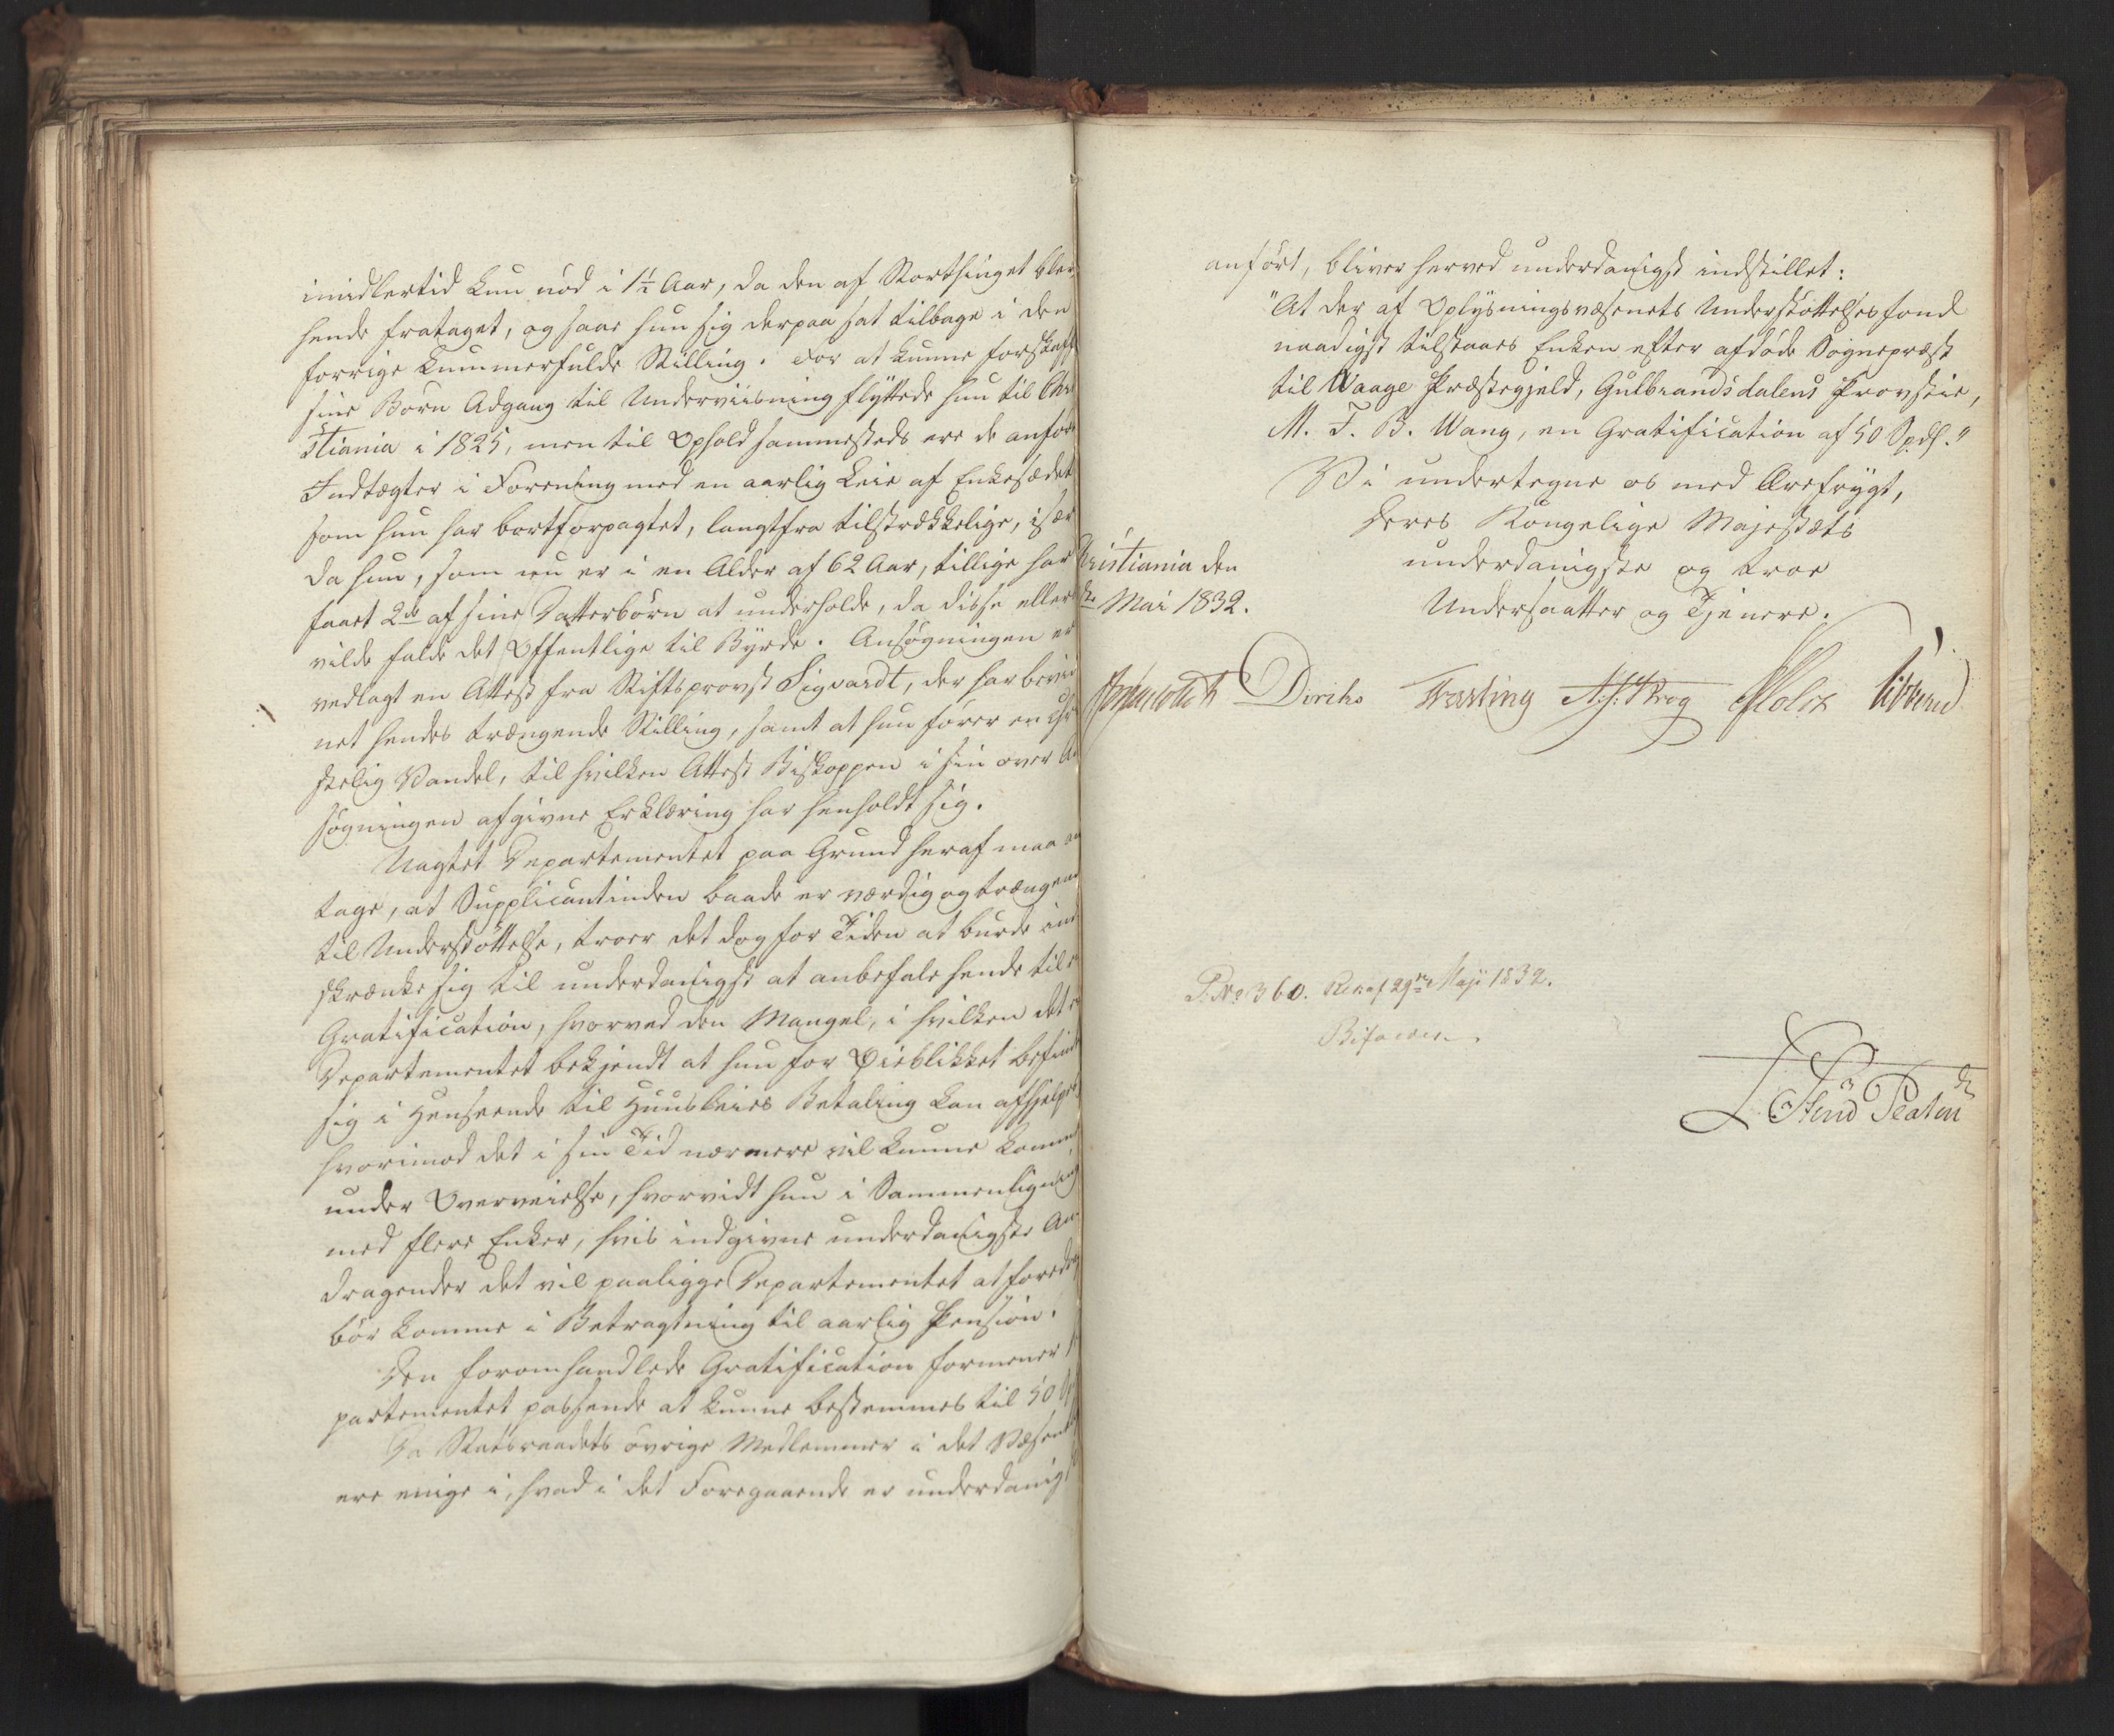 imidlertid kun nød i 1½ Aar, da den af Storthinget blev
hende frataget, og saae hun sig derpaa sat tilbage i den
forrige kummerfulde Stilling. For at kunne forskaffe
sine Børn Adgang til Underviisning flyttede hun til Chri
stiania i 1825, men til Ophold sammesteds ere de anfør
Indtægter i Forening med en aarlig Leie af Enkesædet
som hun har bortforpagtet, langtfra tilstrækkelige, især
da hun, som nu er i en Alder af 62 Aar, tillige har
faaet 2de af sine Datterbørn at underholde, da disse ellers
vilde falde det Offentlige til Byrde. Ansøgningen er
vedlagt en Attest fra Stiftsprovst Sigvardt, der har bevid
net hendes trængende Stilling, samt at hun fører en chri
stelig Vandel, til hvilken Attest Biskoppen i sin over An
søgningen afgivne Erklæring har henholdt sig.
Uagtet Departementet paa Grund heraf maa an
tage, at Supplicantinden baade er værdig og trængende
til Understøttelse, troer det dog for Tiden at burde ind
skrænke sig til underdanigst at anbefale hende til en
Gratification, hvorved den Mangel, i hvilken det er
Departementet bekjendt at hun for Øieblikket befinder
sig i Henseende til Huusleies Betaling kan afhjelpes
hvorimod det i sin Tid nærmere vil kunne komme
under Overveielse, hvorvidt hun i Sammenligning
med flere Enker, hvis indgivne underdanigste An
dragender det vil paaligge Departementet at foredrage
bør komme i Betragtning til aarlig Pension.
Den foromhandlede Gratification formener De
partementet passende at kunne bestemmes til 50 Sp
Da Statsraadets øvrige Medlemmer i det Væsentlige
ere enige i, hvad i det Foregaaende er underdanigst
anført, bliver herved underdanigst indstillet:
"At der af Oplysningsvæsenets Understøttelsesfond
naadigst tilstaaes Enken efter afdøde Sognepræst
til Waage Præstegjeld, Gulbrandsdalens Provstie,
M. F. B. Wang, en Gratification af 50 Spdlr."
Vi undertegne os med Ærefrygt,
Deres Kongelige Majestæts
underdanigste og troe
Undersaatter og Tjenere.
Christiania den
Mai 1832.
Diriks Fasting Holst Vibbend
P. No 360. Ren af 29de Maji 1832.
Bifaldes.